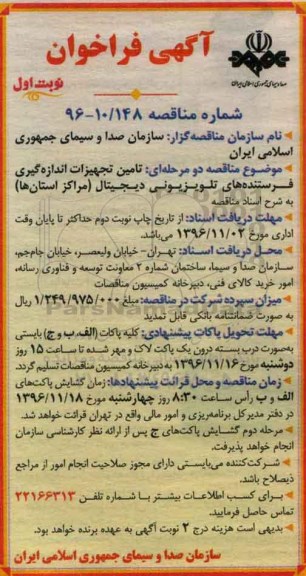 آگهی فراخوان
صدا و سیمای جمهوری اسلامی ایران
نوبت اول
شماره مناقصه ۱۰/۱۴۸-۹۶
نام سازمان مناقصه‌گزار: سازمان صدا و سیمای جمهوری
اسلامی ایران
موضوع مناقصه دو مرحله‌ای: تامین تجهیزات اندازه‌گیری
فرستنده‌های تلویزیونی دیجیتال (مراکز استان‌ها)
به شرح اسناد مناقصه
مهلت دریافت اسناد: از تاریخ چاپ نوبت دوم حداکثر تا پایان وقت
اداری مورخ ۱۳۹۶/۱۱/۰۲ می‌باشد.
محل دریافت اسناد: تهران- خیابان ولیعصر، خیابان جام‌جم،
سازمان صدا و سیما، ساختمان شماره ۲ معاونت توسعه و فناوری رسانه،
امور خرید کالای فنی، دبیرخانه کمیسیون مناقصات
میزان سپرده شرکت در مناقصه: مبلغ ۱/۲۴۹/۹۷۵/۰۰۰ ریال
به صورت ضمانتنامه بانکی قابل تمدید
مهلت تحویل پاکات پیشنهادی: کلیه پاکات (الف، ب و ج) بایستی
به‌صورت درب بسته درون یک پاکت لاک و مهر شده تا ساعت ۱۵ روز
دوشنبه مورخ ۱۳۹۶/۱۱/۱۶ به دبیرخانه کمیسیون مناقصات تسلیم گردد.
زمان مناقصه و محل قرائت پیشنهادها: زمان گشایش پاکت‌های
الف و ب رأس ساعت ۸:۳۰ روز چهارشنبه مورخ ۱۳۹۶/۱۱/۱۸
در دفتر مدیر کل برنامه‌ریزی و امور مالی واقع در تهران قرائت خواهد شد.
مرحله دوم گشایش پاکت‌های ج پس از ارائه نظر کارشناسی سازمان
انجام خواهد پذیرفت.
شرکت‌کننده می‌بایستی دارای مجوز صلاحیت انجام امور از مراجع
ذیصلاح باشد.
برای کسب اطلاعات بیشتر با شماره تلفن ۲۲۱۶۶۳۱۳
تماس حاصل فرمایید.
بدیهی است هزینه درج ۲ نوبت آگهی به عهده برنده خواهد بود.
سازمان صدا و سیمای جمهوری اسلامی ایران